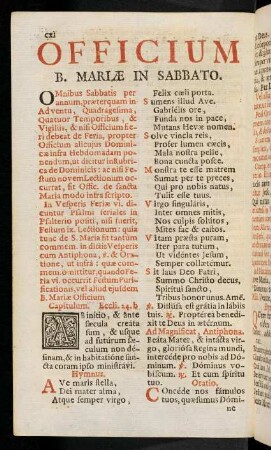 cxl
OFFICIUM
B. MARIÆ IN SABBATO.
OMnibus Sabbatis per
annum, præterquam in
Adventu, Quadragesima,
Quatuor Temporibus, &
Vigiliis, & nisi Officium fie-
ri debeat de Feria, propter
Officium alicujus Domini-
cæ infra Hebdomadam po-
nendum, ut dicitur in Rubri-
ca de Dominicis: ac nisi Fe-
stum novem Lectionum oc-
currat, fit Offic. de sancta
Maria modo infra scripto.
In Vesperis Feriæ vi. di-
cuntur Psalmi feriales in
Psalterio positi, nisi fuerit
Festum ix. Lectionum: quia
tunc de S. Maria fit tantùm
commem. in dictis Vesperis
cum Antiphona, ℣. & Ora-
tione, ut infrà: quæ com-
mem. omittitur, quando Fe-
ria vi. occurrit Festum Puri-
ficationis, vel aliud ejusdem
B. Mariæ Officium.
Capitulum. Eccli. 24. b
AB initio, & ante
sæcula creata
sum, & usque
ad futurum sæ-
culum non de-
sinam, & in habitatione san-
cta coram ipso ministravi.
Hymnus.
AVe maris stella,
Dei mater alma,
Atque semper virgo,
Felix cœli porta.
Sumens illud Ave.
Gabriélis ore,
Funda nos in pace,
Mutans Hevæ nomen.
Solve vincla reis,
Profer lumen cæcis,
Mala nostra pelle,
Bona cuncta posce.
Monstra te esse matrem
Sumat per te preces,
Qui pro nobis natus,
Tulit esse tuus.
Virgo singuláris,
Inter omnes mitis,
Nos culpis solútos
Mites fac & castos.
Vitam præsta puram,
Iter para tutum,
Ut vidéntes Jesum,
Semper collætémur.
Sit laus Deo Patri,
Summo Christo decus,
Spirítui sancto,
Tribus honor unus Amé.
℣. Diffúsa est grátia in lábiis
tuis. ℟. Proptérea benedí-
xit te Deus in ætérnum.
Ad Magnificat, Antiphona.
Beáta Mater, & intácta vir-
go, gloriósa Regína mundi,
intercéde pro nobis ad Dó-
minum. ℣. Dóminus vo-
bíscum. ℟. Et cum spíritu
tuo. Oratio.
COncéde nos fámulos
tuos, quæsumus Dómi-
ne